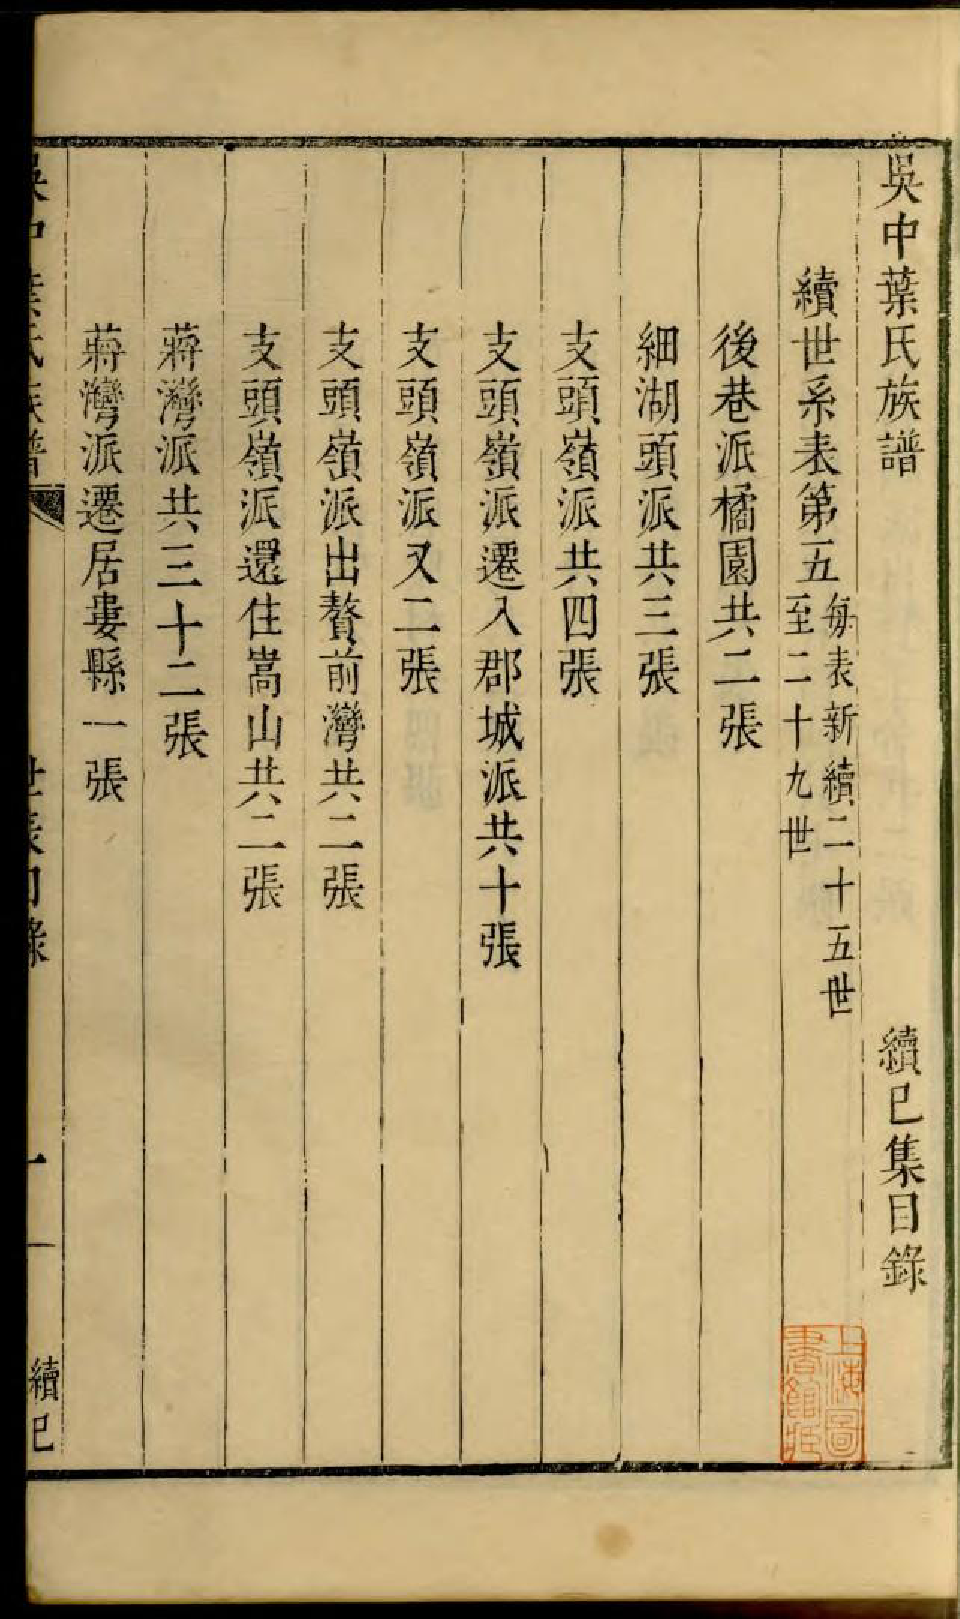 吳中葉氏族譜 續已集目錄
續世系表第五 每表新續二十五世
至二十九世
後巷派橘園共二張
細湖頭派共三張
支頭嶺派共四張
支頭嶺派遷入郡城派共十張
支頭嶺派又二張
支頭嶺派出贅前灣共二張
支頭嶺派還住嵩山共二張
蔣灣派共三十二張
蔣灣派遷居婁縣一張
吳中葉氏族譜 世表目錄 一 續已
上海圖
書館藏